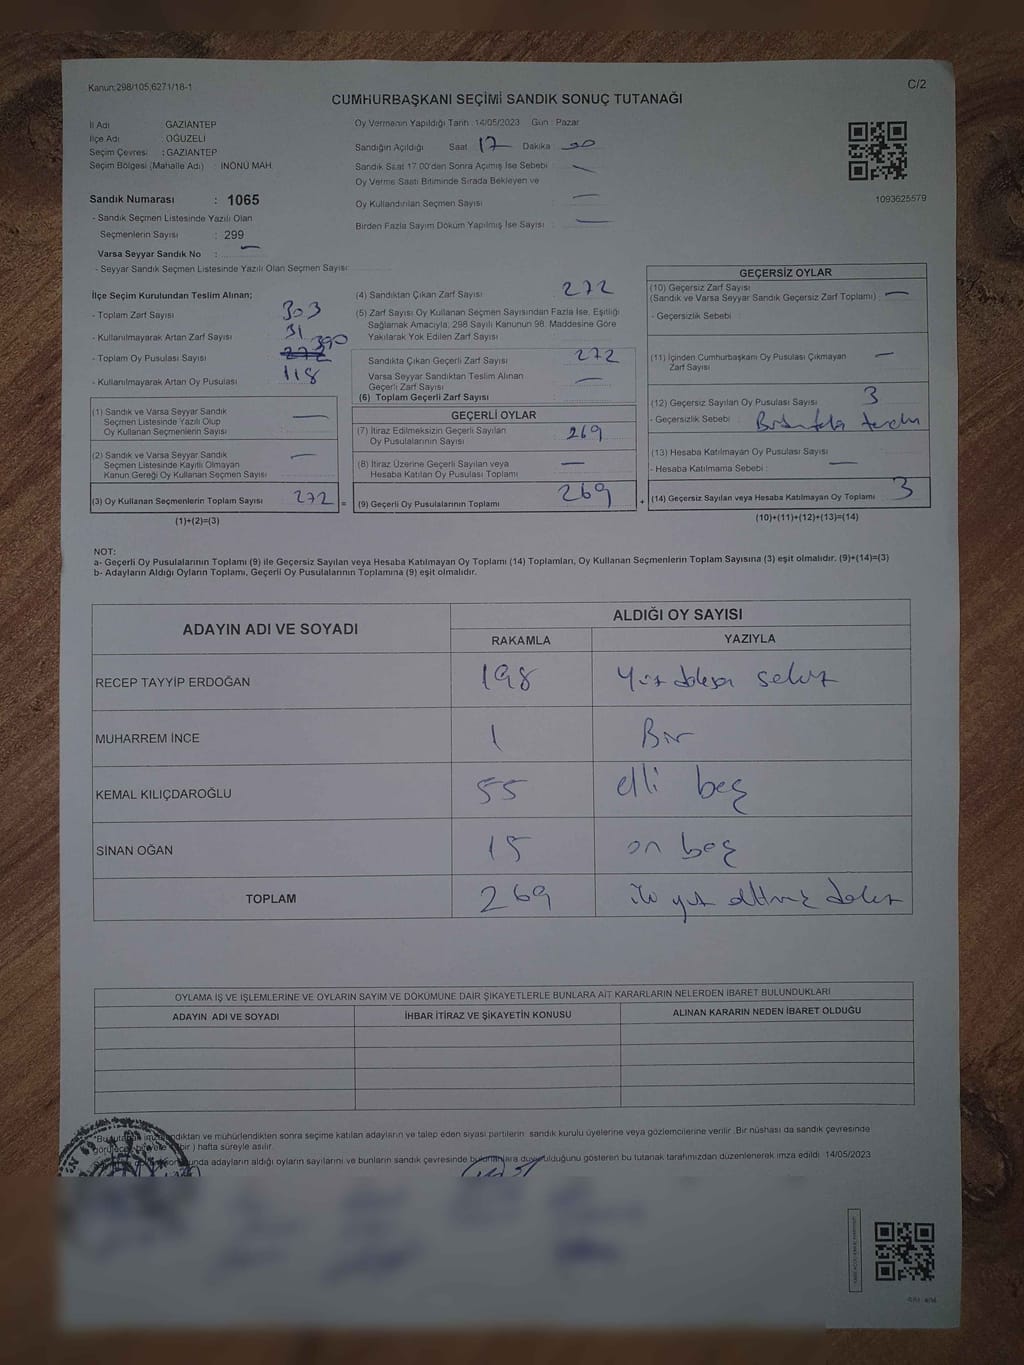 Kanun;298/105,6271/18-1
C/2
CUMHURBAŞKANI SEÇİMİ SANDIK SONUÇ TUTANAĞI
İl Adı : GAZİANTEP
İlçe Adı : OĞUZELİ
Seçim Çevresi : GAZİANTEP
Seçim Bölgesi (Mahalle Adı) : İNÖNÜ MAH.
Sandık Numarası : 1065
- Sandık Seçmen Listesinde Yazılı Olan
Seçmenlerin Sayısı : 299
Varsa Seyyar Sandık No :
- Seyyar Sandık Seçmen Listesinde Yazılı Olan Seçmen Sayısı:
Oy Vermenin Yapıldığı Tarih : 14/05/2023 Gün : Pazar
Sandığın Açıldığı Saat 17 Dakika
Sandık Saat 17.00'den Sonra Açımış İse Sebebi :
Oy Verme Saati Bitiminde Sırada Bekleyen ve
Oy Kullandırılan Seçmen Sayısı :
Birden Fazla Sayım Döküm Yapılmış İse Sayısı :
1093625579
İlçe Seçim Kurulundan Teslim Alınan;
- Toplam Zarf Sayısı : 303
- Kullanılmayarak Artan Zarf Sayısı : 31
- Toplam Oy Pusulası Sayısı : 272 390
- Kullanılmayarak Artan Oy Pusulası : 118
(1) Sandık ve Varsa Seyyar Sandık
Seçmen Listesinde Yazılı Olup
Oy Kullanan Seçmenlerin Sayısı :
(2) Sandık ve Varsa Seyyar Sandık
Seçmen Listesinde Kayıtlı Olmayan
Kanun Gereği Oy Kullanan Seçmen Sayısı :
(3) Oy Kullanan Seçmenlerin Toplam Sayısı : 272 =
(1)+(2)=(3)
(4) Sandıktan Çıkan Zarf Sayısı : 272
(5) Zarf Sayısı Oy Kullanan Seçmen Sayısından Fazla İse, Eşitliği
Sağlamak Amacıyla, 298 Sayılı Kanunun 98. Maddesine Göre
Yakılarak Yok Edilen Zarf Sayısı :
Sandıkta Çıkan Geçerli Zarf Sayısı : 272
Varsa Seyyar Sandıktan Teslim Alınan
Geçerli Zarf Sayısı :
(6) Toplam Geçerli Zarf Sayısı :
GEÇERLİ OYLAR
(7) İtiraz Edilmeksizin Geçerli Sayılan
Oy Pusulalarının Sayısı : 269
(8) İtiraz Üzerine Geçerli Sayılan veya
Hesaba Katılan Oy Pusulası Toplamı :
(9) Geçerli Oy Pusulalarının Toplamı : 269 +
GEÇERSİZ OYLAR
(10) Geçersiz Zarf Sayısı
(Sandık ve Varsa Seyyar Sandık Geçersiz Zarf Toplamı) :
- Geçersizlik Sebebi :
(11) İçinden Cumhurbaşkanı Oy Pusulası Çıkmayan
Zarf Sayısı :
(12) Geçersiz Sayılan Oy Pusulası Sayısı : 3
- Geçersizlik Sebebi :
(13) Hesaba Katılmayan Oy Pusulası Sayısı :
- Hesaba Katılmama Sebebi :
(14) Geçersiz Sayılan veya Hesaba Katılmayan Oy Toplamı : 3
(10)+(11)+(12)+(13)=(14)
NOT:
a- Geçerli Oy Pusulalarının Toplamı (9) ile Geçersiz Sayılan veya Hesaba Katılmayan Oy Toplamı (14) Toplamları, Oy Kullanan Seçmenlerin Toplam Sayısına (3) eşit olmalıdır. (9)+(14)=(3)
b- Adayların Aldığı Oyların Toplamı, Geçerli Oy Pusulalarının Toplamına (9) eşit olmalıdır.
ADAYIN ADI VE SOYADI
ALDIĞI OY SAYISI
RAKAMLA YAZIYLA
RECEP TAYYİP ERDOĞAN 198 Yüz doksan sekiz
MUHARREM İNCE 1 Bir
KEMAL KILIÇDAROĞLU 55 elli beş
SİNAN OĞAN 15 on beş
TOPLAM 269 iki yüz altmış dokuz
OYLAMA İŞ VE İŞLEMLERİNE VE OYLARIN SAYIM VE DÖKÜMÜNE DAİR ŞİKAYETLERLE BUNLARA AİT KARARLARIN NELERDEN İBARET BULUNDUKLARI
ADAYIN ADI VE SOYADI İHBAR İTİRAZ VE ŞİKAYETİN KONUSU ALINAN KARARIN NEDEN İBARET OLDUĞU
ve mühürlendikten sonra seçime katılan adayların ve talep eden siyasi partilerin sandık kurulu üyelerine veya gözlemcilerine verilir .Bir nüshası da sandık çevresinde
hafta süreyle asılır.
adayların aldığı oyların sayılarını ve bunların sandık çevresinde duyurulduğunu gösteren bu tutanak tarafımızdan düzenlenerek imza edildi. 14/05/2023